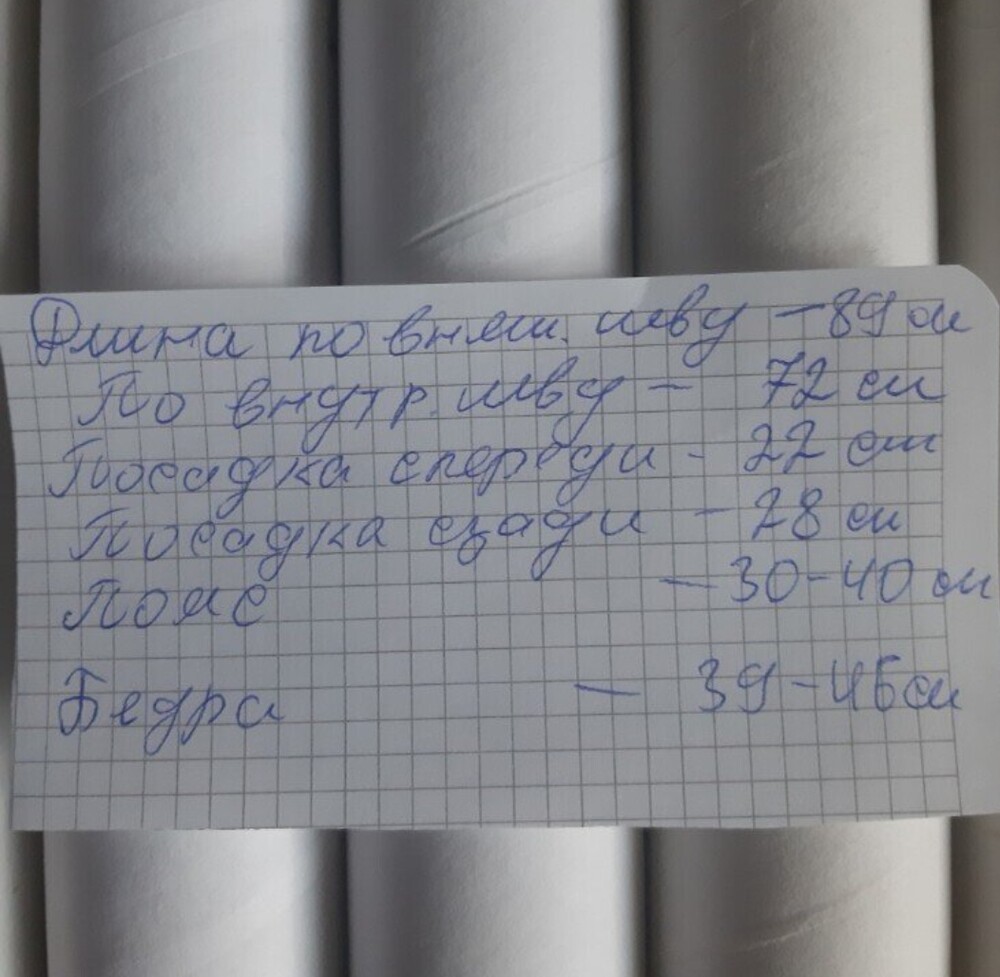 Длина по внеш. шву - 89 см
По внутр. шву - 72 см
Посадка спереди - 22 см
Посадка сзади - 28 см
Пояс - 30-40 см
Бедра - 39-46 см